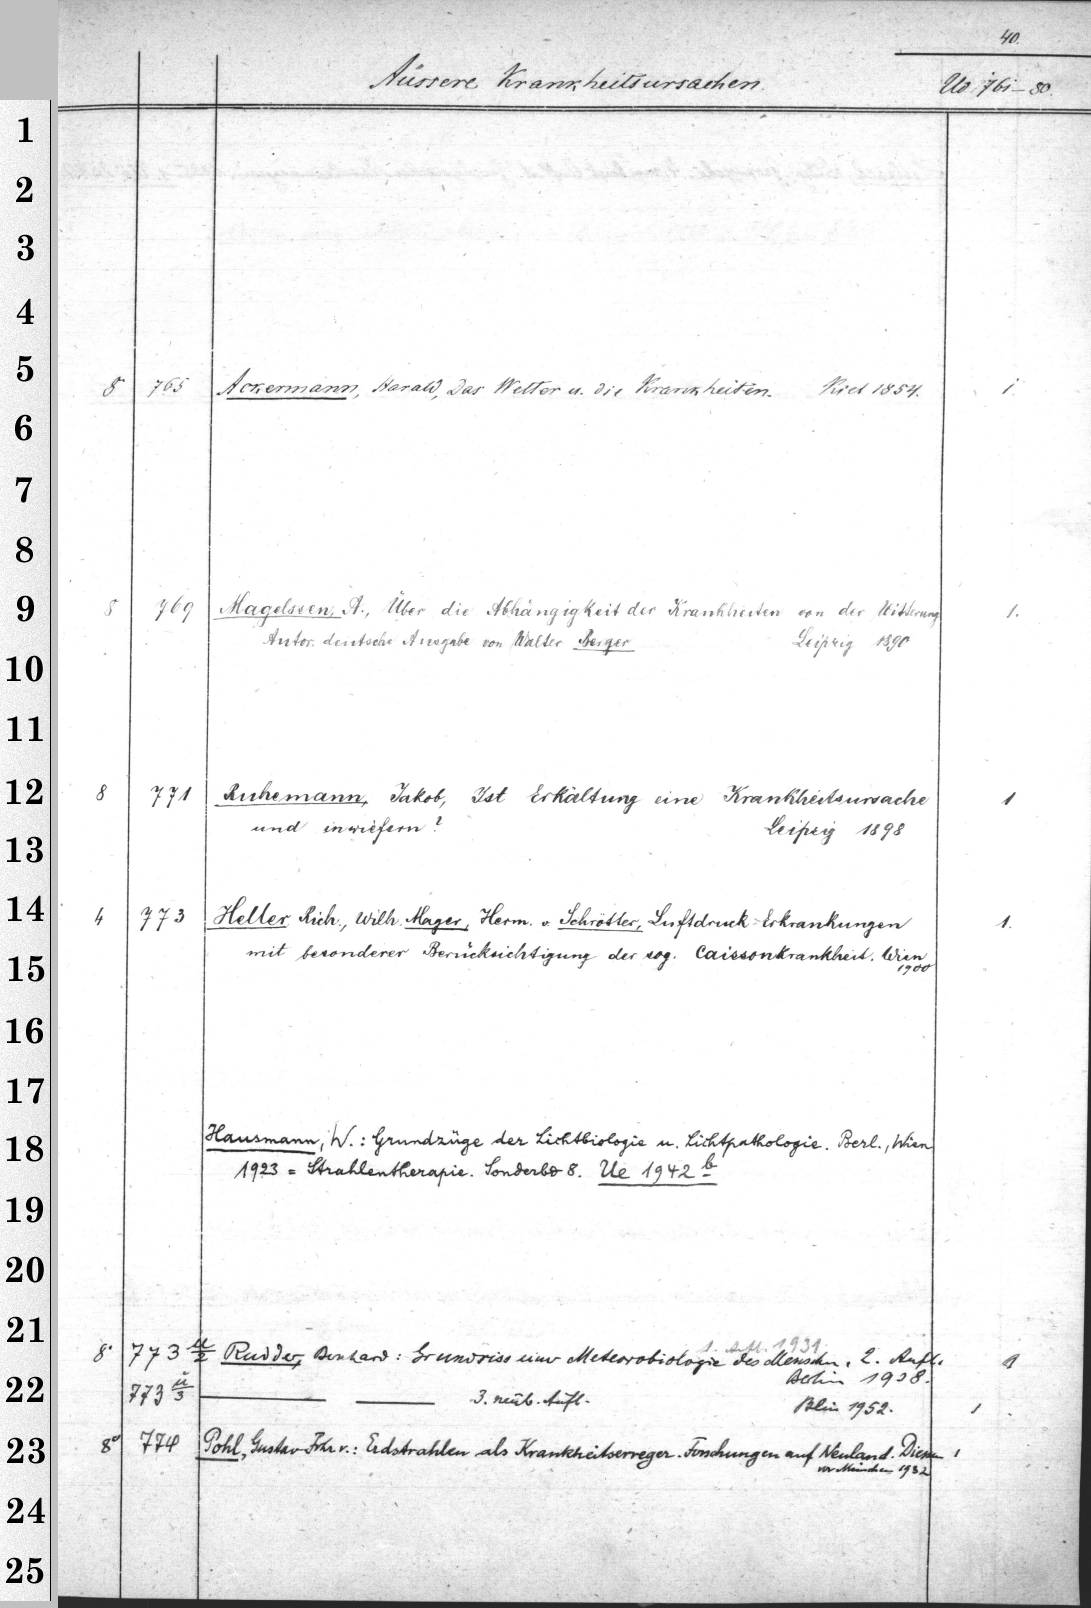 40.
Äussere Krankheitsursachen. Uo 761–80.
1
2
3
4
5
8 765 Ackermann, Harald, Das Wetter u. die Krankheiten. Kiel 1854. 1.
6
7
8
9
8 769 Magelssen, A., Über die Abhängigkeit der Krankheiten von der Witterung 1.
Autor. deutsche Ausgabe von Walter Berger Leipzig 1890
10
11
12
8 771 Ruhemann, Jakob, Ist Erkältung eine Krankheitsursache 1
und inwiefern? Leipzig 1898
13
14
4 773 Heller Rich., Wilh. Mager, Herm. v. Schrötter, Luftdruck-Erkrankungen 1.
mit besonderer Berücksichtigung der sog. Caissonkrankheit. Wien
1900
15
16
17
18
Hausmann, W.: Grundzüge der Lichtbiologie u. Lichtpathologie. Berl., Wien
1923 = Strahlentherapie. Sonderbd 8. Ue 1942 b
19
20
21
1. Aufl. 1931
8° 773 ü/2 Rudder, Bernhard: Grundriss einer Meteorobiologie des Menschen. 2. Aufl. 1
Berlin 1938.
22
773 ü/3 3. neub. Aufl. Bln 1952. 1
23
8° 774 Pohl, Gustav Frhr v.: Erdstrahlen als Krankheitserreger. Forschungen auf Neuland. Diessen 1
vor München 1932
24
25